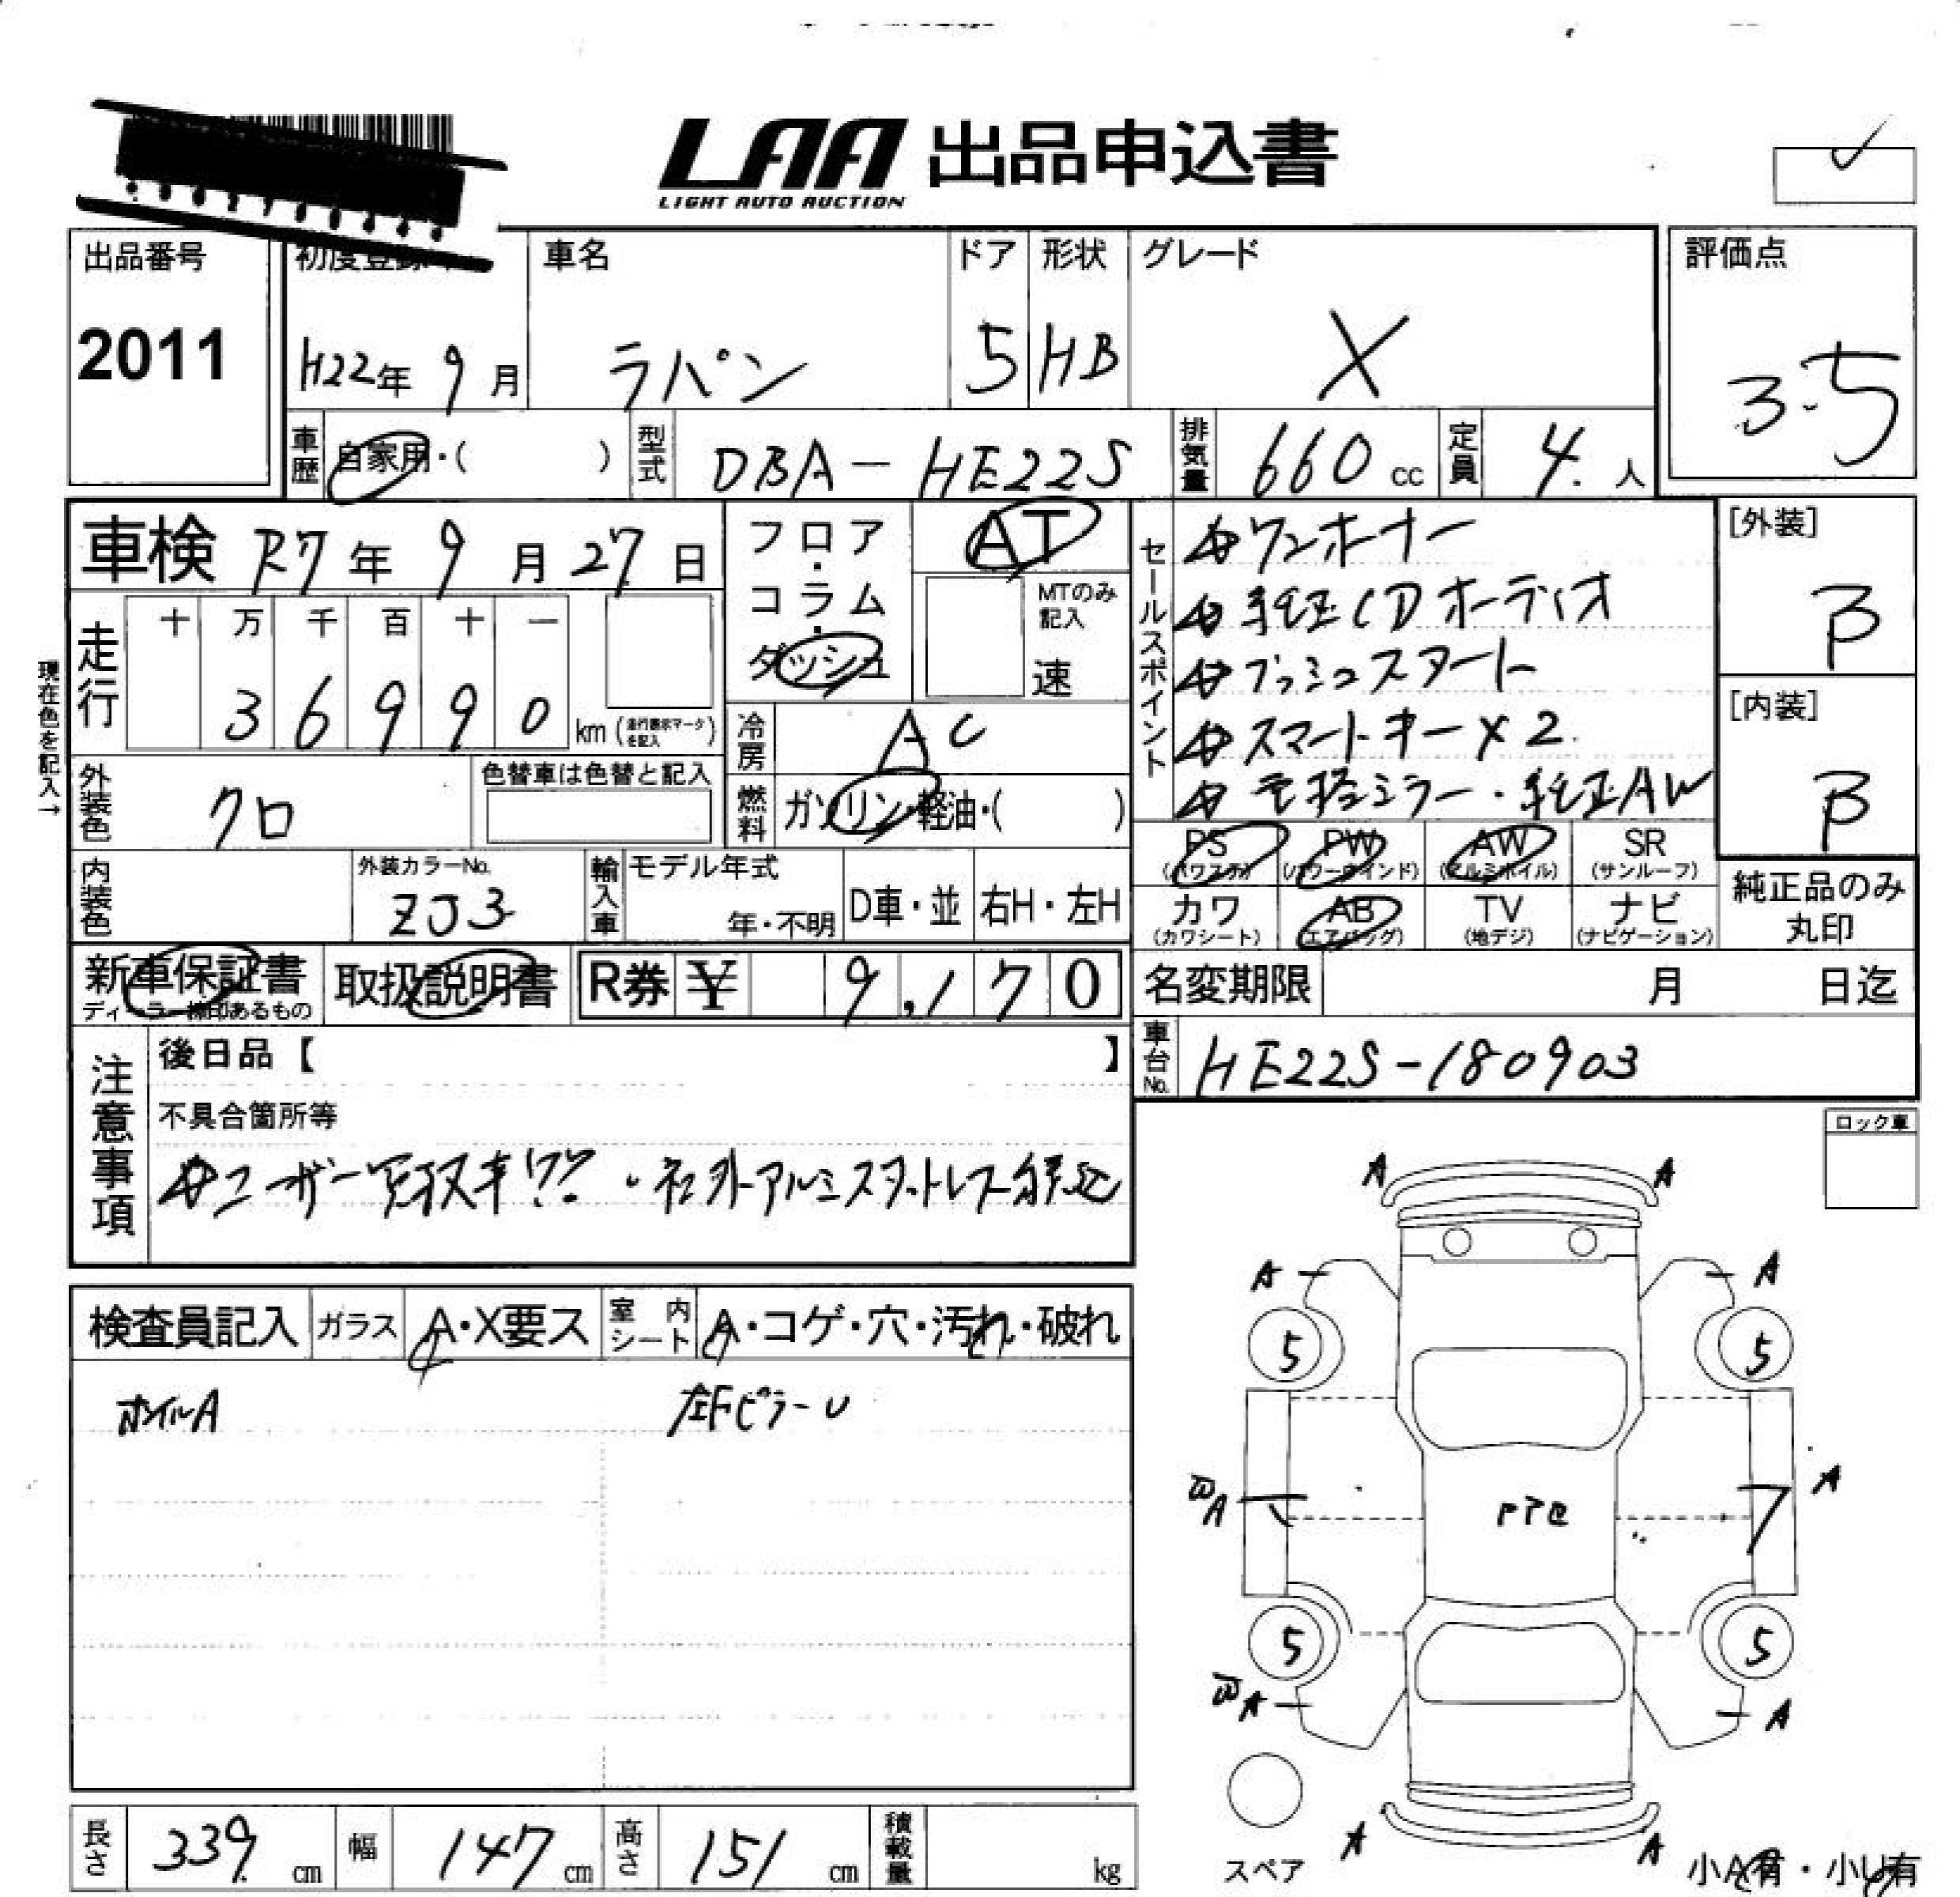 LAA 出品申込書
LIGHT AUTO AUCTION
出品番号 初度登録 車名 ドア 形状 グレード 評価点
2011 H22年 9月 ラパン 5 HB X 3.5
車歴 自家用・( ) 型式 DBA-HE22S 排気量 660 cc 定員 4 人
車検 R7年 9月 27日
フロア・コラム・ダッシュ AT
MTのみ記入 速
セールスポイント
ワンオーナー
純正CDオーディオ
プッシュスタート
スマートキー×2
電格ミラー・純正AW
[外装] B
[内装] B
現在色を記入→
走行 十 万 千 百 十 一
3 6 9 9 0 km (走行表示マークを記入)
冷房 AC
外装色 クロ 色替車は色替と記入
燃料 ガソリン・軽油・( )
PS (パワステ) PW (パワーウインド) AW (アルミホイル) SR (サンルーフ)
カワ (カワシート) AB (エアバッグ) TV (地デジ) ナビ (ナビゲーション)
純正品のみ丸印
内装色 外装カラーNo. ZJ3 輸入車 モデル年式 年・不明 D車・並 右H・左H
新車保証書 取扱説明書 R券 ¥ 9,170 名変期限 月 日迄
ディーラー捺印あるもの
車台No. HE22S-180903
注意事項
後日品【 】
不具合箇所等
ユーザー買取車!?? ・社外アルミスタットレス積込
ロック車
検査員記入 ガラス A・X要ス 室内シート A・コゲ・穴・汚れ・破れ
ホイルA 左FピラーU
A A
A A
5 5
A A
5 5
A A
A A
スペア 小A有・小U有
長さ 339 cm 幅 147 cm 高さ 151 cm 積載量 kg